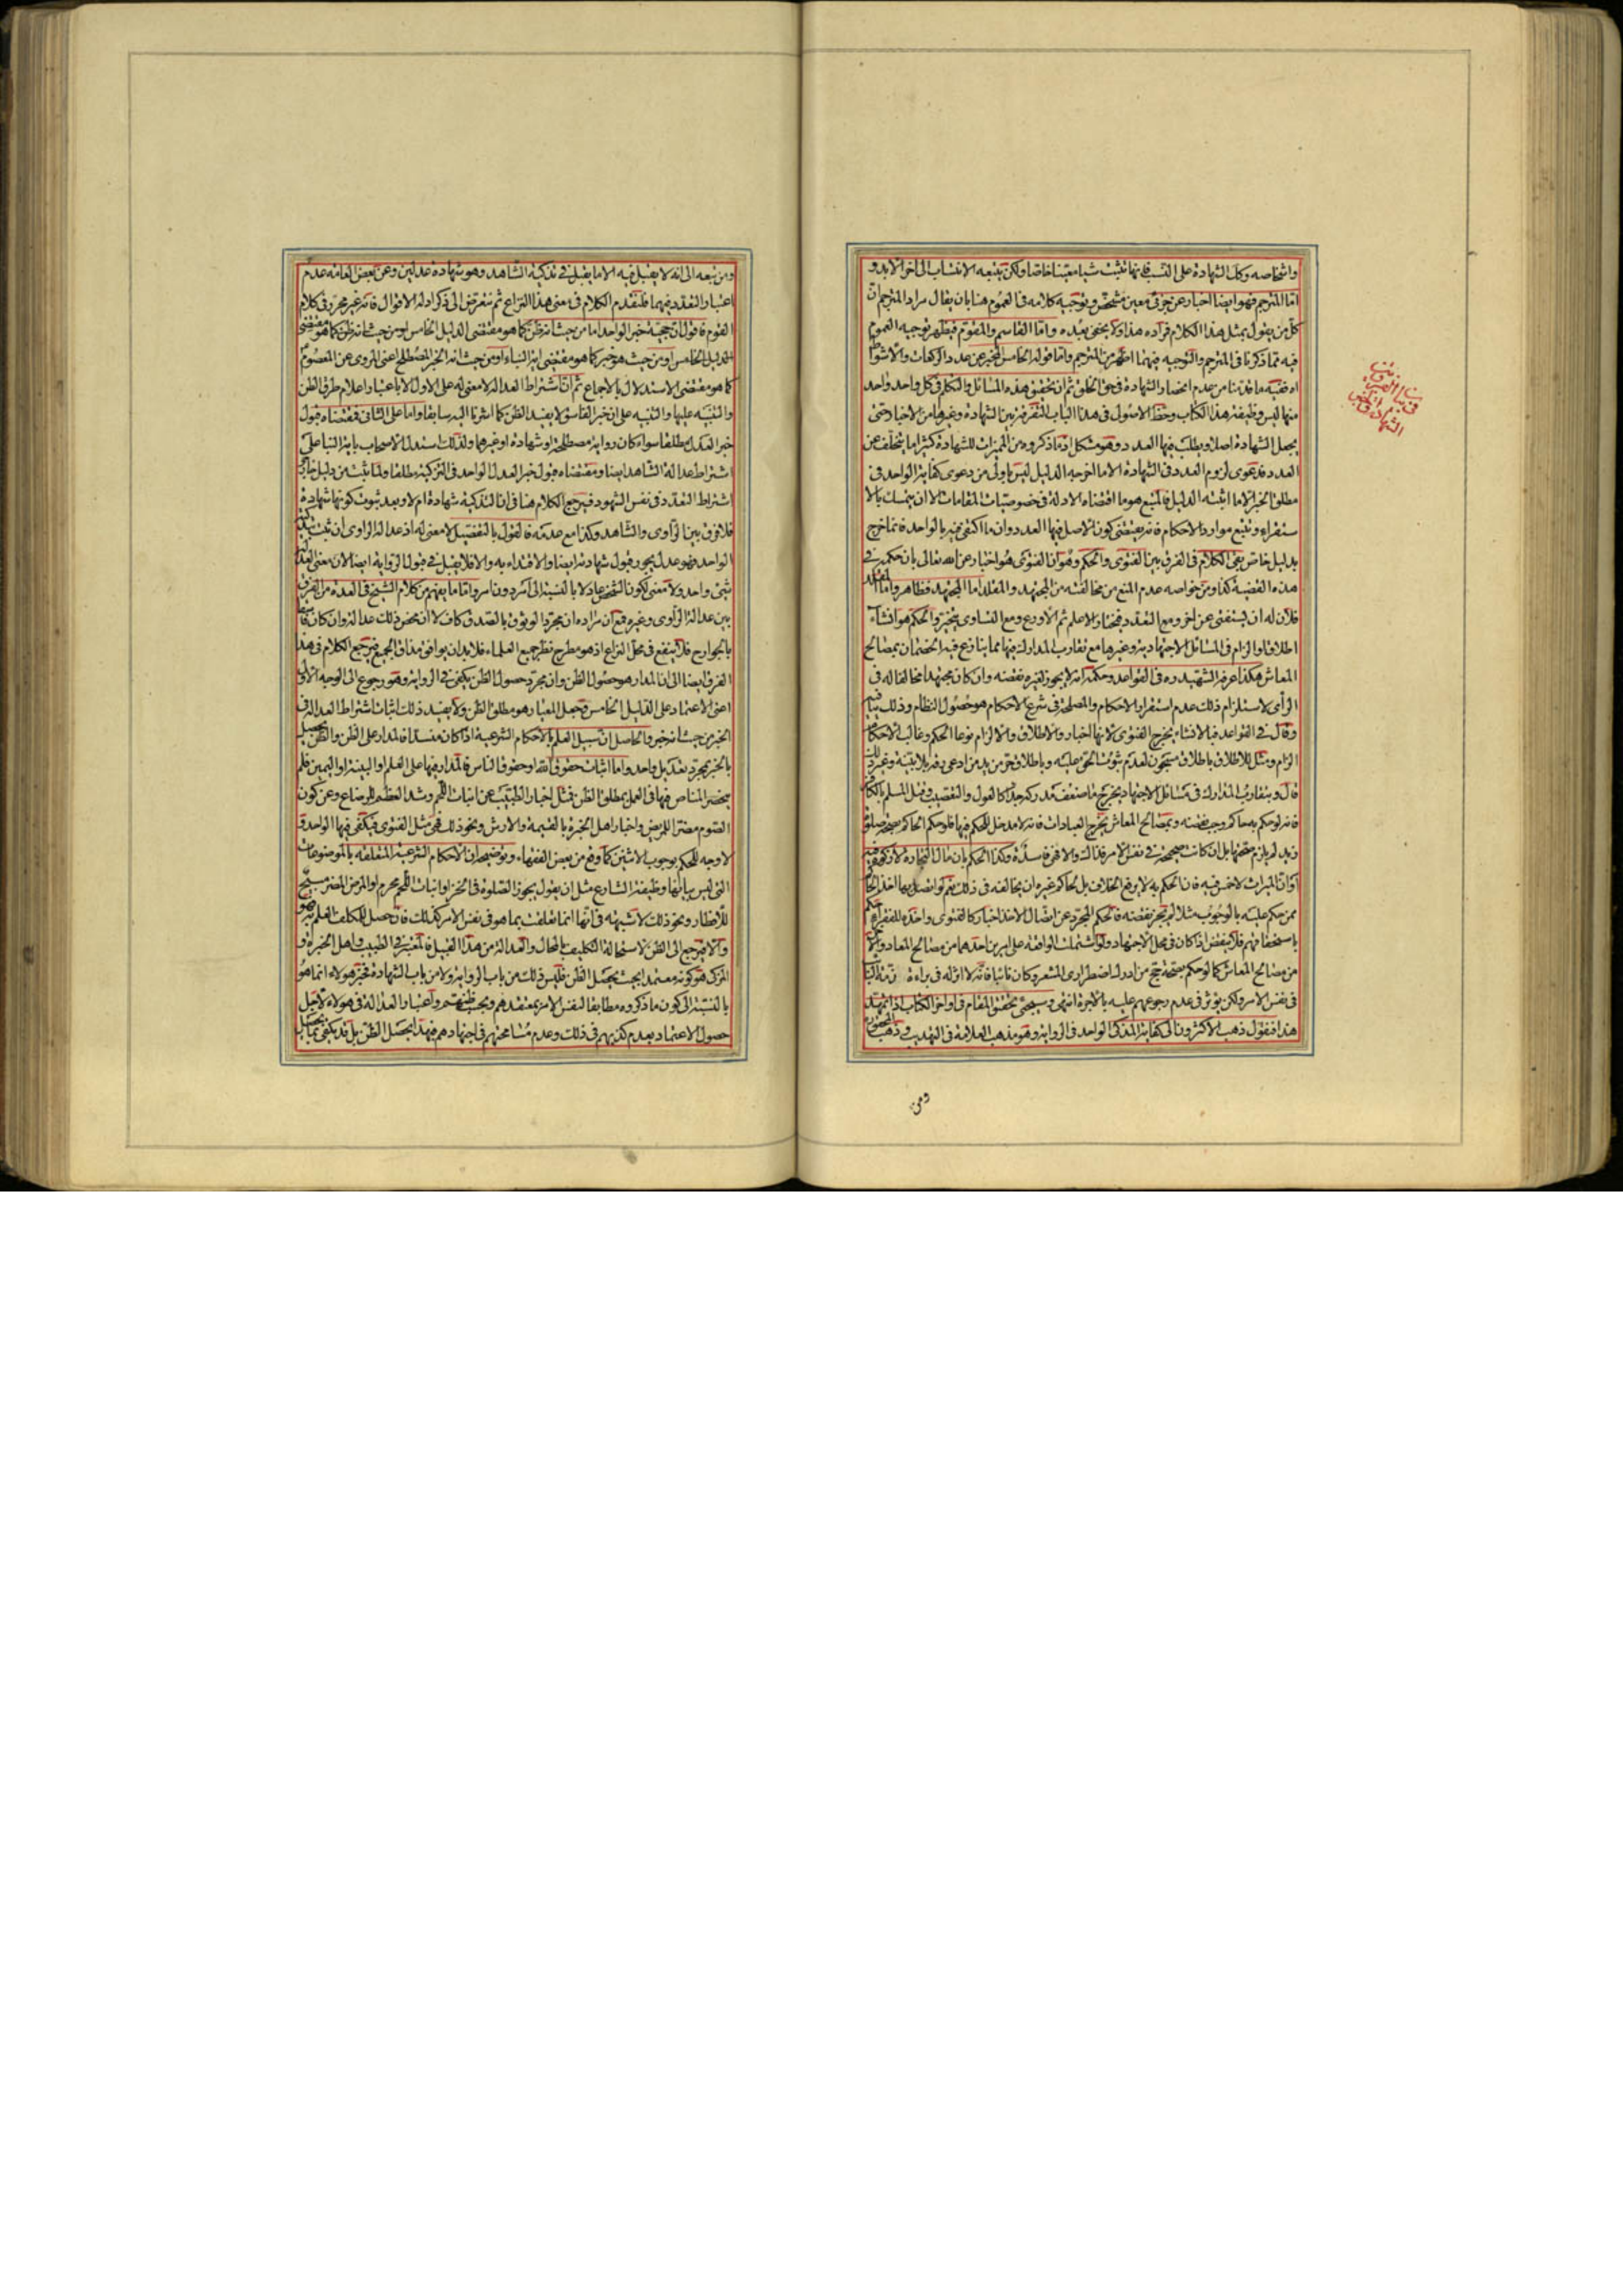 واشخاصه وكك الشهادة على النسب فانها تثبت شيئا معينا خاصا ولكن يتبعه الانتساب الى اخر الابد و
اما المترجم فهو ايضا اخبار عن جزئى معين مشخص وتوجيه كلامه فى العموم هنا بان يقال مراد المترجم ان
كل من يقول بمثل هذا الكلام فمراده هذا ولا يخفى بعده واما القاسم والمقوم فيظهر توجيه العموم
فيه مما ذكرنا فى المترجم والتوجيه فيهما اظهر من المترجم واما قوله الخامس المخبر عن عدد الركعات والاشواط
اه ففيه ما قدمنا من عدم انحصار الشهادة فى حق الخلق ثم ان تحقيق هذه المسائل والتكلم فى كل واحد واحد
منها ليس وظيفة هذا الكتاب وحظ الاصول فى هذا الباب التفرقة بين الشهادة وغيرها من الاخبار حتى
يجعل الشهادة اصلا ويطلب فيها العدد وهو مشكل اذ ما ذكروه من المميزات للشهادة كثيرا ما يتخلف عن
العدد فدعوى لزوم العدد فى الشهادة الا ما اخرجه الدليل ليس باولى من دعوى كفاية الواحد فى
مطلق الخبر الا ما اثبته الدليل فالمتبع هو ما اقتضاه الادلة فى خصوصيات المقامات الا ان يتمسك بالا
ستقراء وتتبع موارد الاحكام فانه يقتضى كون الاصل فيها العدد وان ما اكتفى فيه بالواحد فانما خرج
بدليل خاص بقى الكلام فى الفرق بين الفتوى والحكم وهو ان الفتوى هو اخبار عن الله تعالى بان حكمه فى
هذه القضية كذا ومن خواصه عدم المنع من مخالفته من المجتهد والمقلد اما المجتهد فظاهر واما المقلد
فلان له ان يستفتى عن اخر ومع التعدد فيختار الاعلم ثم الاورع ومع التساوى يتخير والحكم هو انشاء
اطلاق او الزام فى المسائل الاجتهادية وغيرها مع تقارب المدارك فيها مما يتنازع فيه الخصمان بمصالح
المعاش هكذا عرفه الشهيد ره فى القواعد وحكمه انه لا يجوز لغيره نقضه وان كان مجتهدا مخالفا له فى
الرأى لاستلزام ذلك عدم استقرار الاحكام والمصلحة فى شرع الاحكام هو حصول النظام وذلك ينافيه
وقال فى القواعد فبالانشاء يخرج الفتوى لانها اخبار والاطلاق والالزام نوعا الحكم وغالب الاحكام
الزام ومثل للاطلاق باطلاق مسجون لعدم ثبوت الحق عليه وباطلاق حر من يد من ادعى رقه بلا بينة وغير ذلك
قال وبتقارب المدارك فى مسائل الاجتهاد يخرج ما ضعف مدركه جدا كالعول والتعصيب وقتل المسلم بالكافر
فانه لو حكم به حاكم وجب نقضه وبمصالح المعاش يخرج العبادات فانه لا مدخل للحكم فيها فلو حكم الحاكم بصحة صلوة
زيد لم يلزم صحتها بل ان كانت صحيحة فى نفس الامر فذاك والا فهى فاسدة وكذا الحكم بان مال التجارة لا زكوة فيه
او ان الميراث لا خمس فيه فان الحكم به لا يرفع الخلاف بل لحاكم غيره ان يخالفه فى ذلك نعم لو اتصل بها اخذ الحاكم
ممن حكم عليه بالوجوب مثلا لم يجز نقضه فالحكم المجرد عن اتصال الاخذ اخبار كالفتوى واخذه للفقراء حكم
باستحقاقهم فلا ينقض اذا كان فى محل الاجتهاد ولو اشتملت الواقعة على امرين احدهما من مصالح المعاد والاخر
من مصالح المعاش كما لو حكم بصحة حج من ادرك اضطرارى المشعر وكان نائبا فانه لا اثر له فى براءة ذمة النائب
فى نفس الامر ولكن يؤثر فى عدم رجوعهم عليه بالاجرة انتهى وسيجئ تحقيق المقام فى اواخر الكتاب اذا تمهد
هذا فنقول ذهب الاكثرون الى كفاية المذكى الواحد فى الرواية وهو مذهب العلامة فى التهذيب وذهب المحقق
ومن
ومن تبعه الى انه لا يقبل فيه الا ما يقبل فى تذكية الشاهد وهو شهادة عدلين وعن بعض العامة عدم
اعتبار التعدد فيهما فلنقدم الكلام فى معنى هذا النزاع ثم نتعرض الى ذكر ادلة الاقوال فانه غير محرر فى كلام
القوم فاقول ان حجية خبر الواحد اما من حيث انه ظن كما هو مقتضى الدليل الخامس
او من حيث هو خبر كما هو مقتضى اية النباء او من حيث انه الخبر المصطلح اعنى المروى عن المعصوم
كما هو مقتضى الاستدلال بالاجماع ثم ان اشتراط العدالة لا معنى له على الاول الا باعتبار اعلام طرق الظن
والتنبيه عليها والتنبيه على ان خبر الفاسق لا يفيد الظن كما اشرنا اليه سابقا واما على الثانى فمقتضاه قبول
خبر العدل مطلقا سواء كان رواية مصطلحة او شهادة او غيرها ولذلك استدل الاصحاب باية النبأ على
اشتراط عدالة الشاهد ايضا ومقتضاه قبول خبر العدل الواحد فى التزكية مطلقا ولما ثبت من دليل خارج
اشتراط التعدد فى نفس الشهود فيرجع الكلام هنا فى ان التذكية شهادة ام لا وبعد ثبوت كونها شهادة
فلا فرق بين الراوى والشاهد وكذا مع عدمه فالقول بالتفصيل لا معنى له اذ عدالة الراوى ان ثبت بتزكية
الواحد فهو عدل يجوز قبول شهادته ايضا والاقتداء به والا فلا يقبل فى قبول الرواية ايضا لان معنى العدالة
شئ واحد ولا معنى لكون الشخص عادلا بالنسبة الى امر دون امر واما ما يفهم من كلام الشيخ فى العدة من الفرق
بين عدالة الراوى وغيره فمع ان مراده ان مجرد الوثوق بالصدق كاف لا ان محض ذلك عدالة وان كان فاسقا
بالجوارح فلا ينفع فى محل النزاع اذ هو مطرح نظر جميع العلماء فلا بد ان يوافق مذاق الجميع فيرجع الكلام فى هذا
الفرق ايضا الى ان المدار هو حصول الظن وان مجرد حصول الظن يكفى فى الرواية وهو رجوع الى الوجه الاول
اعنى الاعتماد على الدليل الخامس وجعل المعيار هو مطلق الظن ولا يفيد ذلك اثبات اشتراط العدالة فى
الخبر من حيث انه خبر والحاصل ان سبيل العلم بالاحكام الشرعية اذا كان منسدا فالمدار على الظن والظن يحصل
بالخبر بمجرد تعديل واحد واما اثبات حقوق الله او حقوق الناس فالمدار فيها على العلم او البينة او اليمين فلم
ينحصر المناص فيها فى العمل بمطلق الظن فمثل اخبار الطبيب عن انبات اللحم وشد العظم للرضاع وعن كون
الصوم مضرا للمريض واخبار اهل الخبرة بالقيمة والارش ونحو ذلك فهى مثل الفتوى فيكفى فيها الواحد و
لا وجه للحكم بوجوب الاثنين كما وقع من بعض الفقهاء وتوضيحه ان الاحكام الشرعية المتعلقة بالموضوعات
التى ليس بيانها وظيفة الشارع مثل ان يقول يجوز الصلوة فى الخز وانبات اللحم محرم او المرض المضر مبيح
للافطار ونحو ذلك لا شبهة فى انها انما تعلقت بما هو فى نفس الامر كذلك فان حصل للمكلف العلم به فهو
والا فيرجع الى الظن لاستحالة التكليف بالمحال والعدالة من هذا القبيل فالمعتبر فى الطبيب واهل الخبرة و
المزكى هو كونه معتمدا بحيث يحصل الظن فليس ذلك من باب الرواية ولا من باب الشهادة فخبر هؤلاء انما هو
بالنسبة الى كون ما ذكروه مطابقا لنفس الامر بمعتقدهم وبحسب ظنهم واعتبار العدالة فى هؤلاء لاجل
حصول الاعتماد بعدم كذبهم فى ذلك وعدم مسامحتهم فى اجتهادهم فبهذا يحصل الظن بل قد يكفى